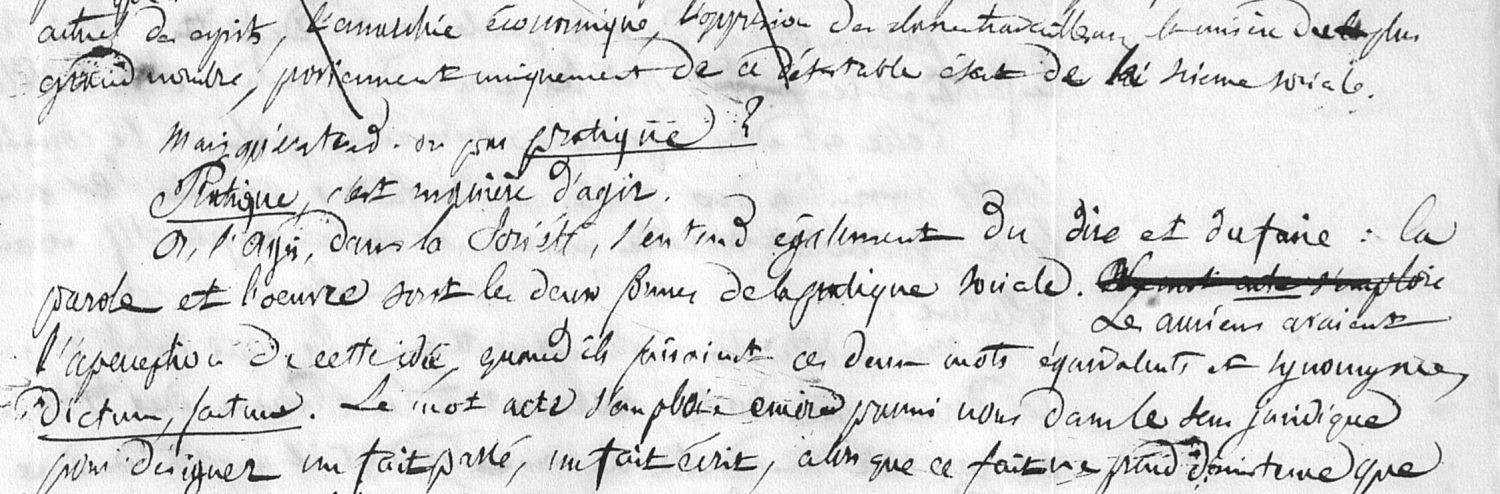 actuel des esprits, l'anarchie économique, l'oppression des classes travailleuses, la misère du plus
grand nombre, proviennent uniquement de ce détestable état de la science sociale.
Mais qu'entend-on par pratique ?
Pratique, c'est manière d'agir.
Or, l'agir, dans la Société, s'entend également du dire et du faire : la
parole et l'oeuvre sont les deux formes de la pratique sociale. Le mot acte s'emploie
Les anciens avaient
l'aperception de cette idée, quand ils faisaient ces deux mots équivalents et synonymes,
Dictum, factum. Le mot acte s'emploie encore parmi nous dans le sens juridique
pour désigner un fait passé, un fait écrit, alors que ce fait ne prend d'existence que